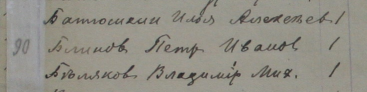 Батюшкин Илья Алексеев 1
90 Блинов Петр Иванов 1
Бѣляков Владимір Мих. 1